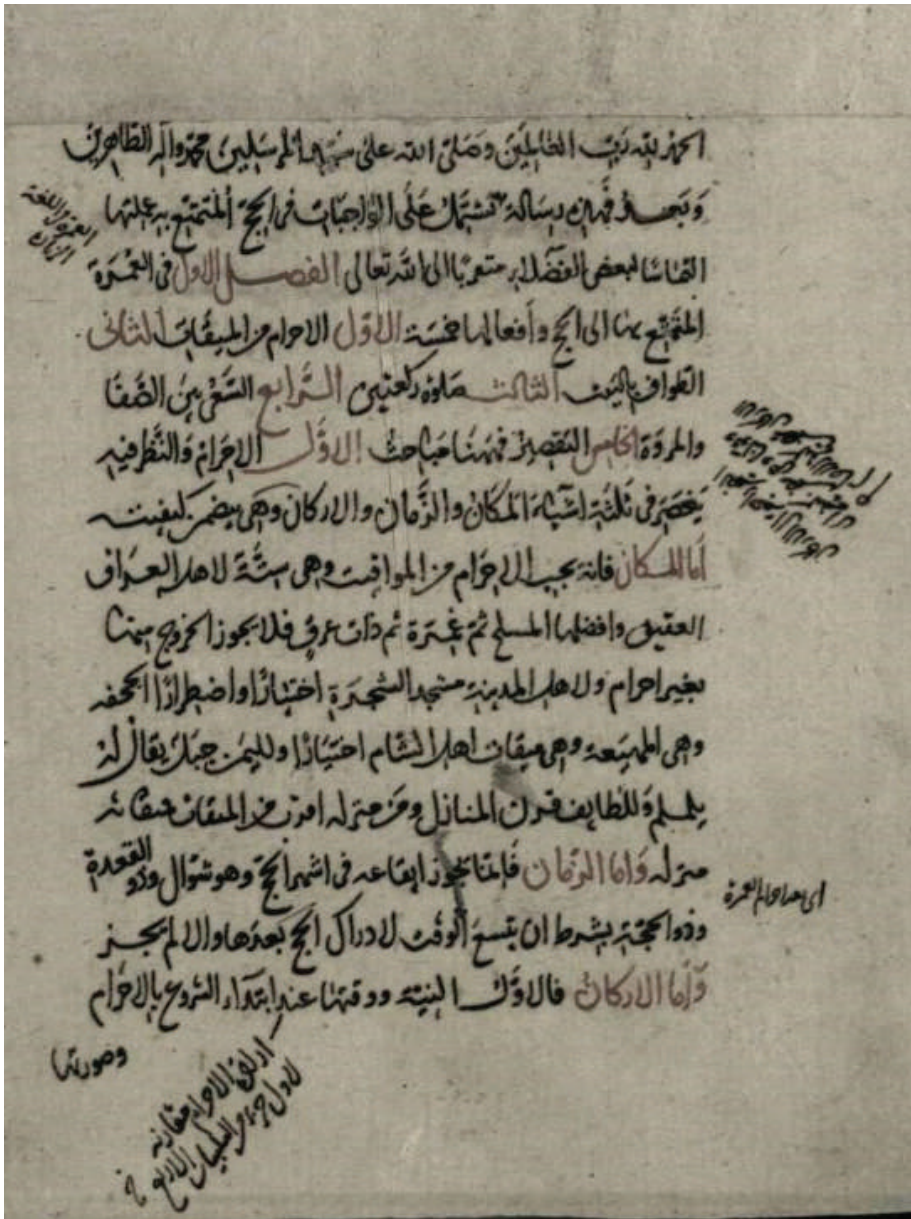 الحمد لله رب العالمين وصلى الله على سيد المرسلين محمد وآله الطاهرين
وبعد فهذه رسالة تشتمل على الواجبات في الحج المتمتع به عملتها
العمرة في اللغة
الزيارة
التماسا لبعض الفضلاء متقربا الى الله تعالى الفصل الاول في العمرة
المتمتع بها الى الحج وأفعالها خمسة الاول الاحرام من الميقات الثانى
الطواف بالبيت الثالث صلوة ركعتين الرابع السعى بين الصفا
والمروة الخامس التقصير فههنا مباحث الاول الاحرام والنظر فيه
ينحصر فى ثلثة اشياء المكان والزمان والاركان وهى بضمن كيفيته
أما المكان فانه يجب الاحرام من المواقيت وهى ستة لاهل العراق
العقيق وافضلها المسلح ثم غمرة ثم ذات عرق فلا يجوز الخروج منها
بغير احرام ولاهل المدينة مسجد الشجرة اختيارا واضطرارا الجحفه
وهى المهيعة وهى ميقات اهل الشام اختيارا ولليمن جبل يقال له
يلملم وللطايف قرن المنازل ومن منزله اقرب من الميقات فميقاته
منزله وأما الزمان فانما يجوز ايقاعه فى اشهر الحج وهو شوال وذو القعدة
وذو الحجة بشرط ان يتسع الوقت لادراك الحج بعدها والا لم يجز
اى بعد العمرة
وأما الاركان فالاول النية ووقتها عند ابتداء الشروع بالاحرام
وصورتها